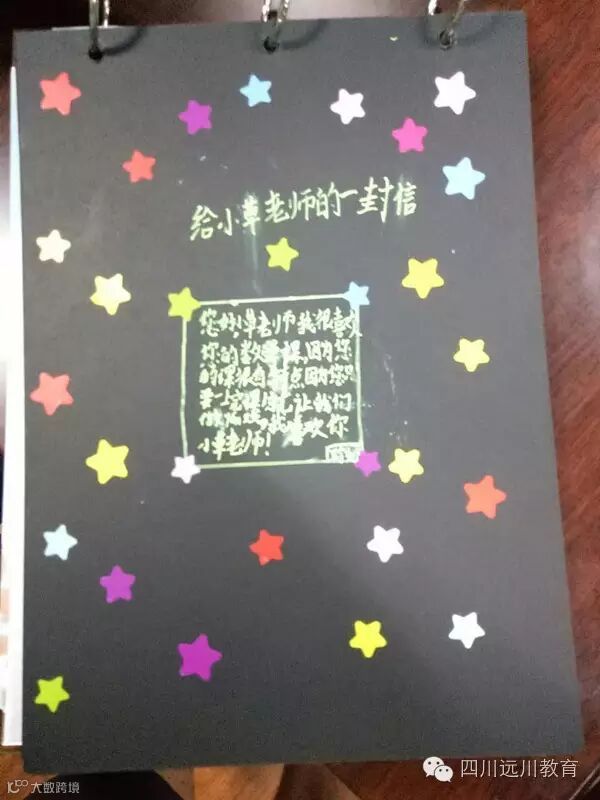 给小草老师的一封信
您好,小草老师我很喜欢
你的数学课,因为您
的课很有 点因为您只
要一 课 让我们
做 我喜欢你
小草老师!
四川远川教育
大数跨境